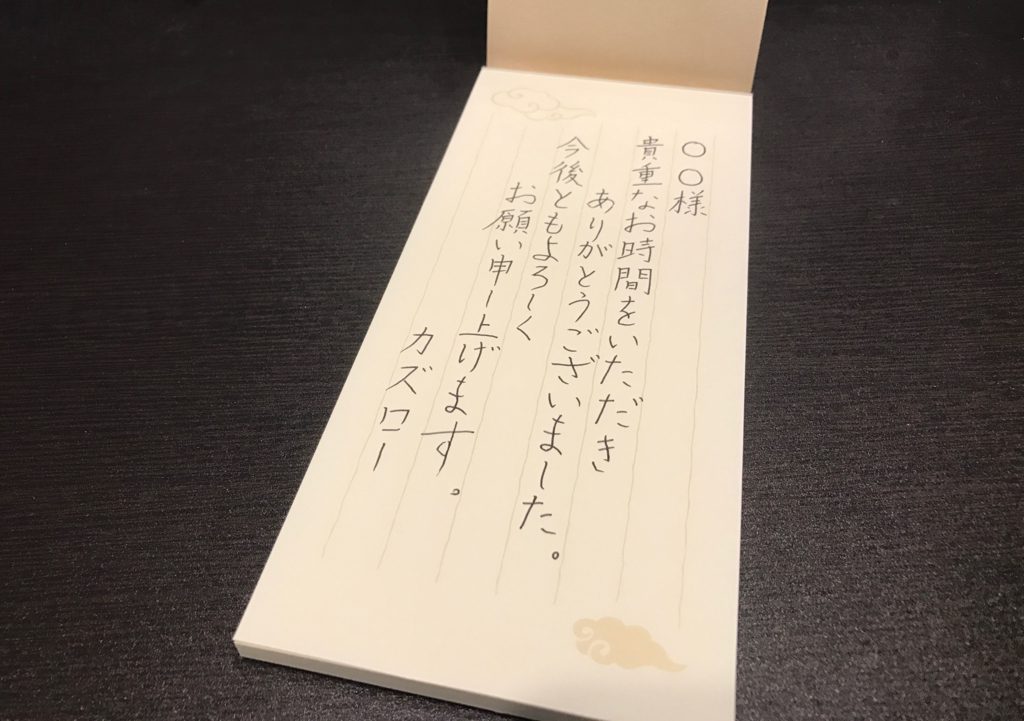 ○○様
貴重なお時間をいただき
ありがとうございました。
今後ともよろしく
お願い申し上げます。
カズロー